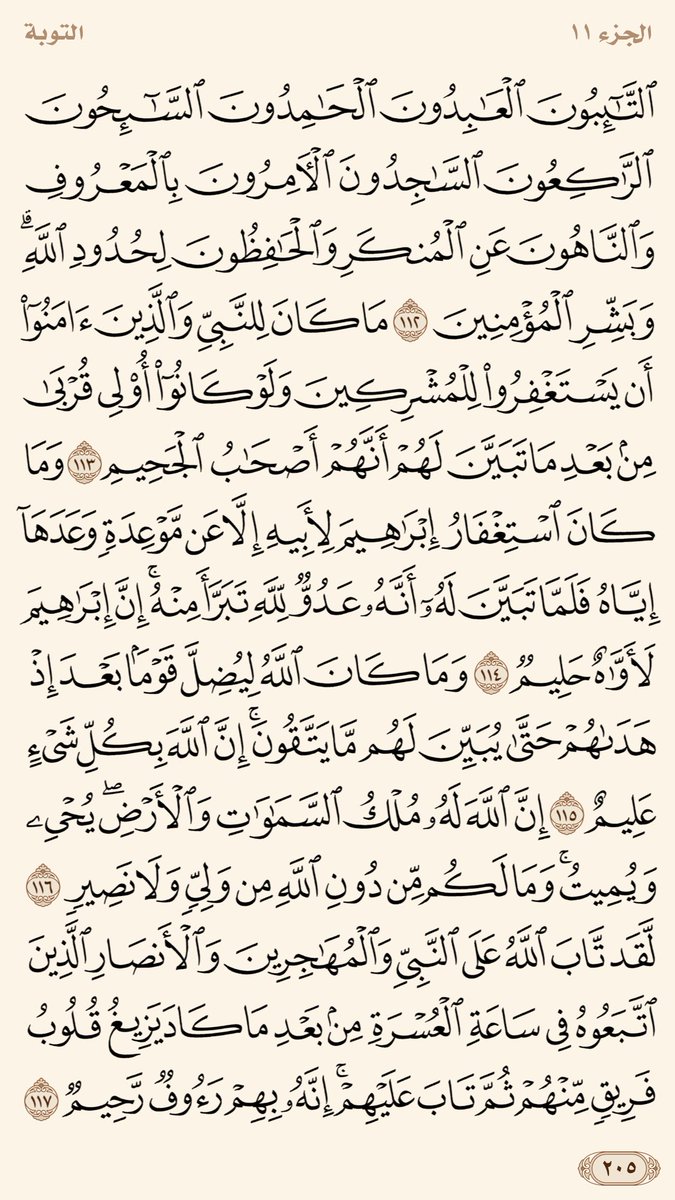 الجزء ١١ التوبة
ٱلتَّـٰٓئِبُونَ ٱلْعَـٰبِدُونَ ٱلْحَـٰمِدُونَ ٱلسَّـٰٓئِحُونَ
ٱلرَّٰكِعُونَ ٱلسَّـٰجِدُونَ ٱلْـَٔامِرُونَ بِٱلْمَعْرُوفِ
وَٱلنَّاهُونَ عَنِ ٱلْمُنكَرِ وَٱلْحَـٰفِظُونَ لِحُدُودِ ٱللَّهِ ۗ
وَبَشِّرِ ٱلْمُؤْمِنِينَ ١١٢ مَا كَانَ لِلنَّبِىِّ وَٱلَّذِينَ ءَامَنُوٓا۟
أَن يَسْتَغْفِرُوا۟ لِلْمُشْرِكِينَ وَلَوْ كَانُوٓا۟ أُو۟لِى قُرْبَىٰ
مِنۢ بَعْدِ مَا تَبَيَّنَ لَهُمْ أَنَّهُمْ أَصْحَـٰبُ ٱلْجَحِيمِ ١١٣ وَمَا
كَانَ ٱسْتِغْفَارُ إِبْرَٰهِيمَ لِأَبِيهِ إِلَّا عَن مَّوْعِدَةٍ وَعَدَهَآ
إِيَّاهُ فَلَمَّا تَبَيَّنَ لَهُۥٓ أَنَّهُۥ عَدُوٌّ لِّلَّهِ تَبَرَّأَ مِنْهُ ۚ إِنَّ إِبْرَٰهِيمَ
لَأَوَّٰهٌ حَلِيمٌ ١١٤ وَمَا كَانَ ٱللَّهُ لِيُضِلَّ قَوْمًۢا بَعْدَ إِذْ
هَدَىٰهُمْ حَتَّىٰ يُبَيِّنَ لَهُم مَّا يَتَّقُونَ ۚ إِنَّ ٱللَّهَ بِكُلِّ شَىْءٍ
عَلِيمٌ ١١٥ إِنَّ ٱللَّهَ لَهُۥ مُلْكُ ٱلسَّمَـٰوَٰتِ وَٱلْأَرْضِ ۖ يُحْىِۦ
وَيُمِيتُ ۚ وَمَا لَكُم مِّن دُونِ ٱللَّهِ مِن وَلِىٍّ وَلَا نَصِيرٍ ١١٦
لَّقَد تَّابَ ٱللَّهُ عَلَى ٱلنَّبِىِّ وَٱلْمُهَـٰجِرِينَ وَٱلْأَنصَارِ ٱلَّذِينَ
ٱتَّبَعُوهُ فِى سَاعَةِ ٱلْعُسْرَةِ مِنۢ بَعْدِ مَا كَادَ يَزِيغُ قُلُوبُ
فَرِيقٍ مِّنْهُمْ ثُمَّ تَابَ عَلَيْهِمْ ۚ إِنَّهُۥ بِهِمْ رَءُوفٌ رَّحِيمٌ ١١٧
٢٠٥